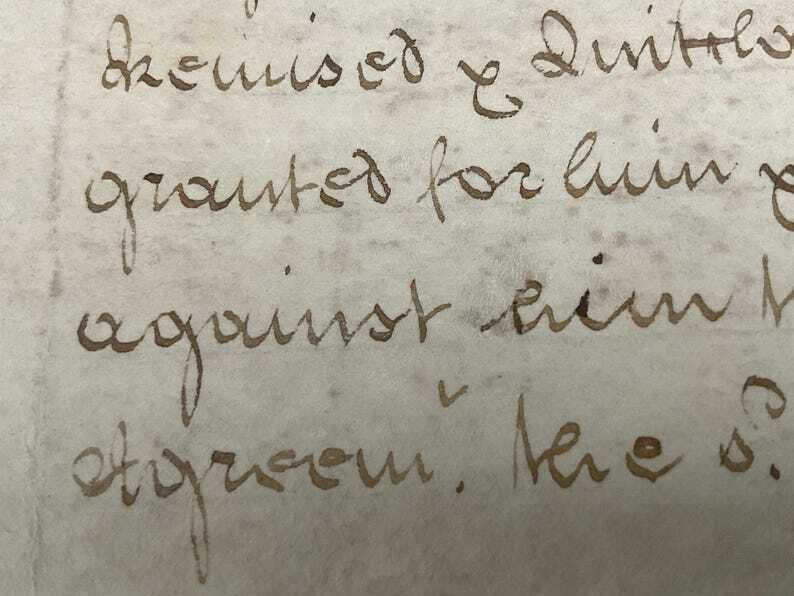 Remised & Quittclo
granted for him &
against him
Agreem.t the s.d